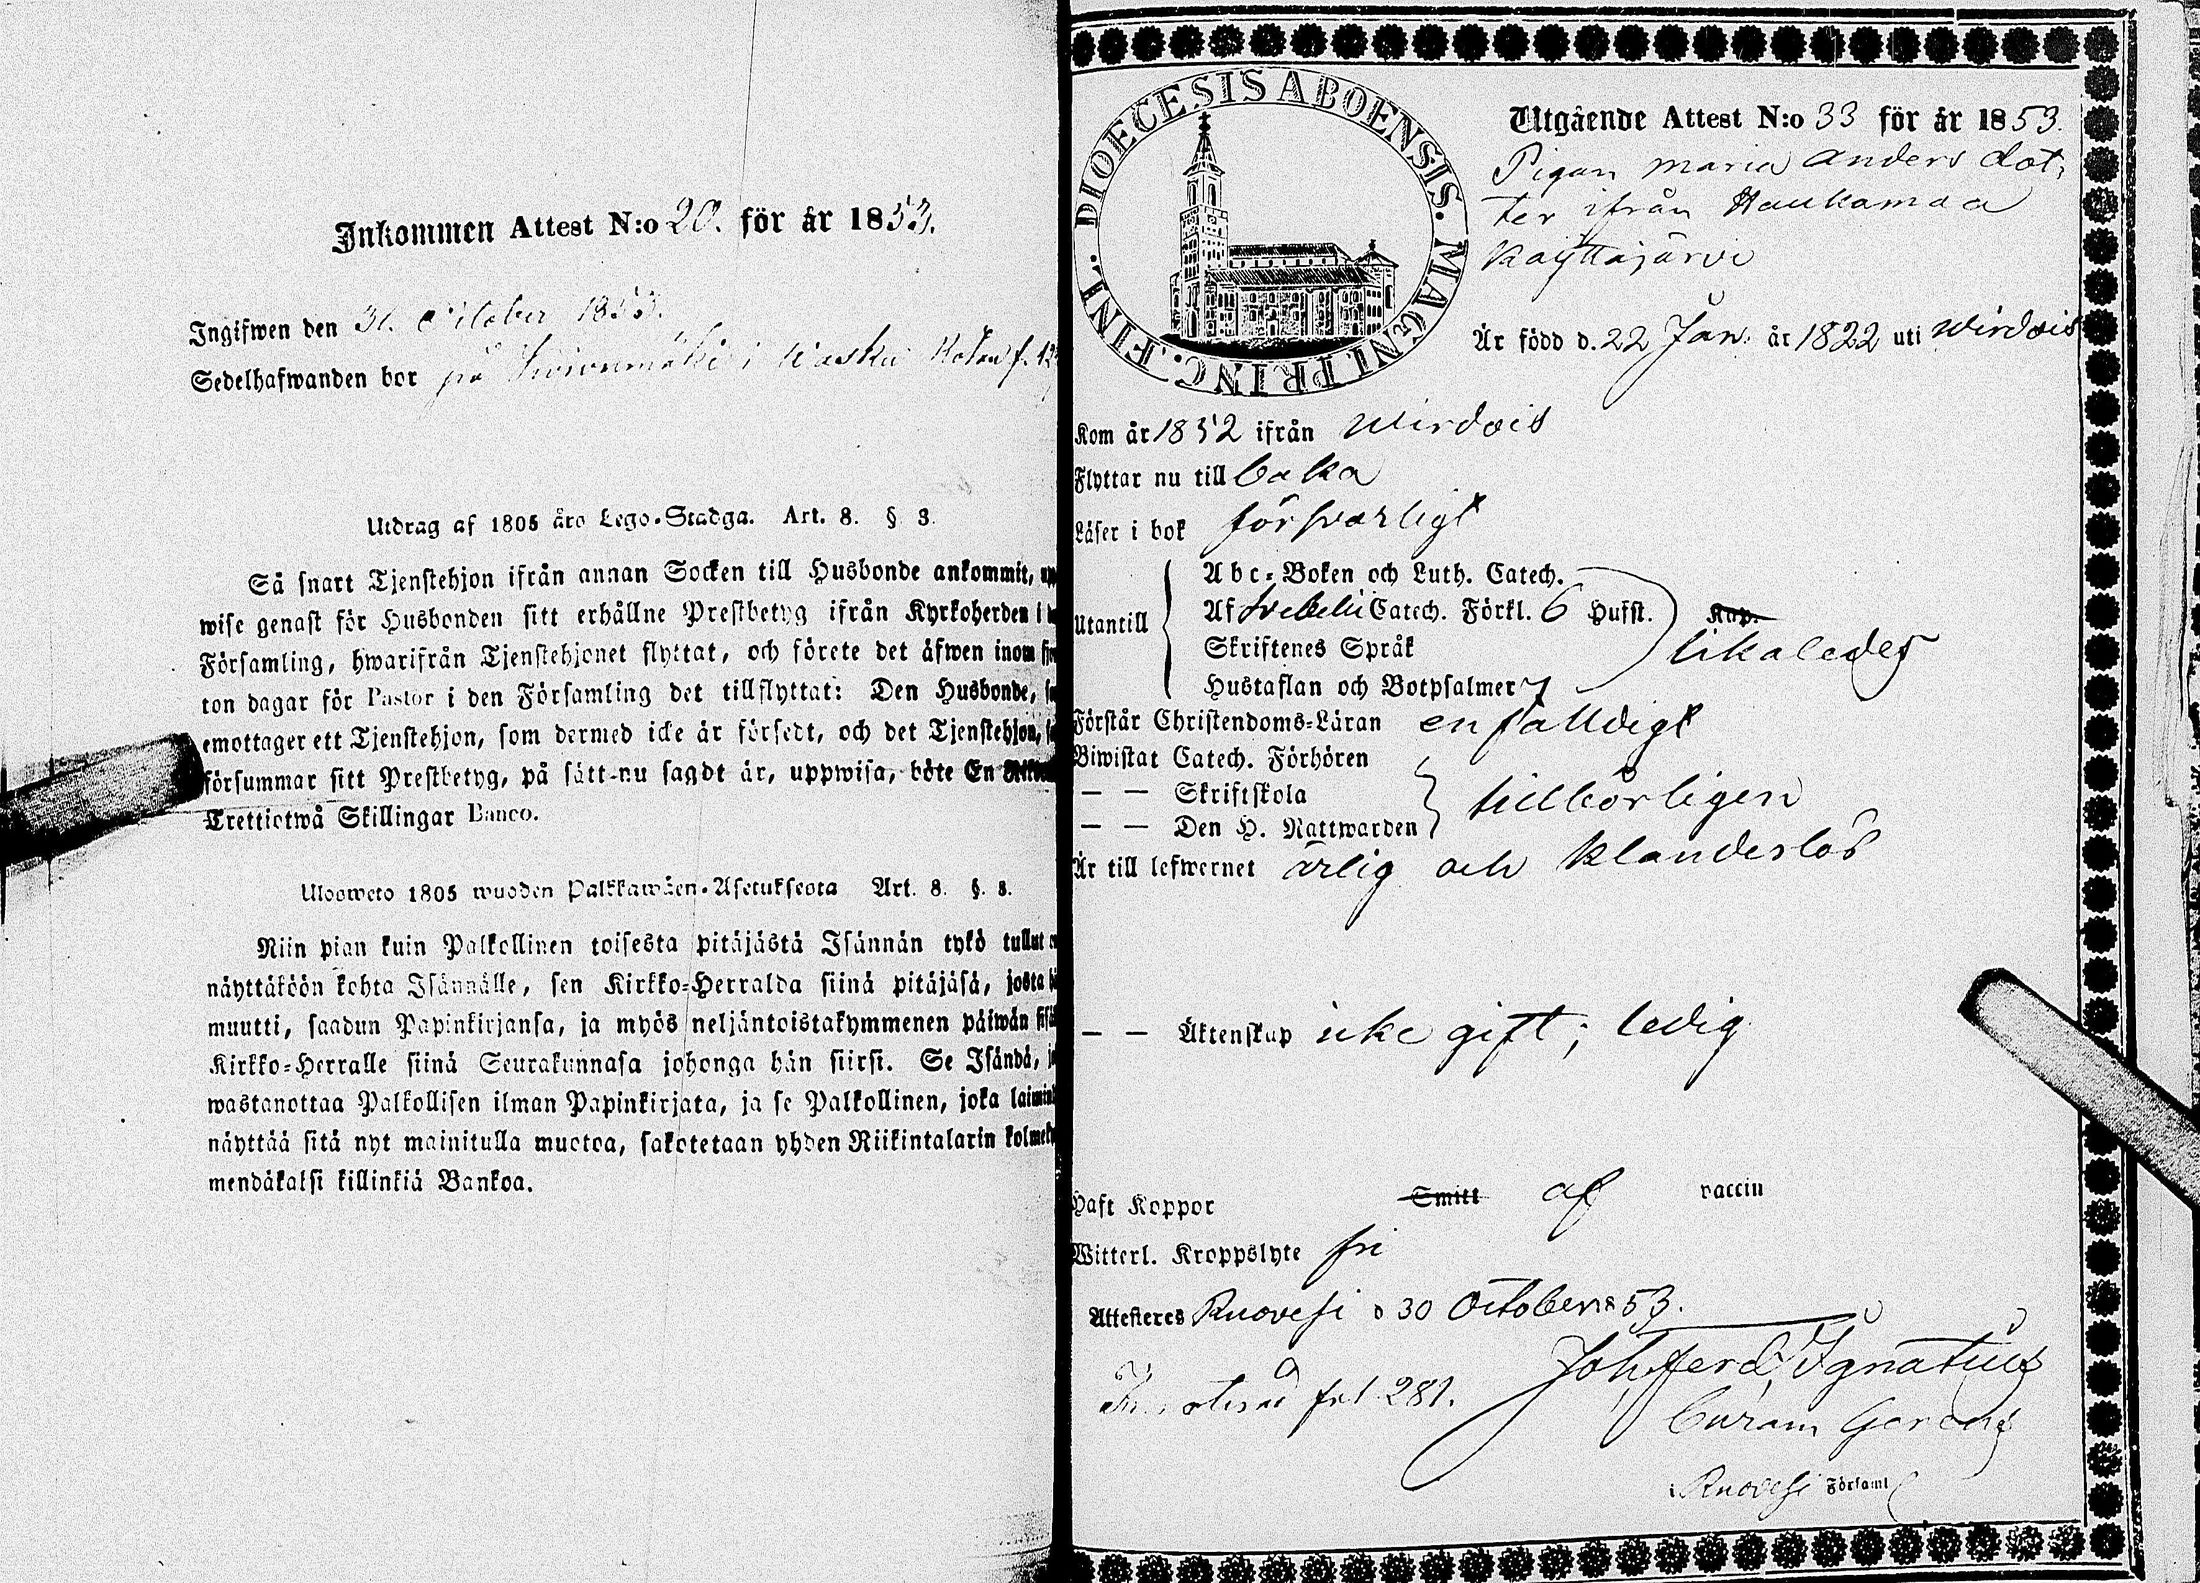 Inkommen Attest N:o 20. för år 1853.
Ingifwen den 31. October 1853.
Sedelhafwanden bor på i Kasku f.
Utdrag af 1805 års Lego-Stadga. Art. 8. § 3.
Så snart Tjenstehjon ifrån annan Socken till Husbonde ankommit,
wise genast för Husbonden sitt erhållne Prestbetyg ifrån Kyrkoherden i
Församling, hwarifrån Tjenstehjonet flyttat, och förete det äfwen inom
ton dagar för Pastor i den Församling det tillflyttat: Den Husbonde,
emottager ett Tjenstehjon, som dermed icke är försedt, och det Tjenstehjon,
försummar sitt Prestbetyg, på sätt nu sagdt är, uppwisa, böte En
Trettiotwå Skillingar Banco.
Ulosweto 1805 wuoden Palkkawäen-Asetuksesta Art. 8. §. 3.
Niin pian kuin Palkollinen toisesta pitäjästä Isännän tykö tullut
näyttäköön kohta Isännälle, sen Kirkko-Herralda siinä pitäjäsä, josta
muutti, saadun Papinkirjansa, ja myös neljäntoistakymmenen päiwän
Kirkko-Herralle siinä Seurakunnasa johonga hän siirsi. Se Isändä,
wastanottaa Palkollisen ilman Papinkirjata, ja se Palkollinen, joka
näyttää sitä nyt mainitulla muotoa, sakotetaan yhden Riikintalarin
mendäkaksi killinkiä Bankoa.
DIOECESIS ABOENSIS. MAGNI. PRINC. FINL.
Utgående Attest N:o 33 för år 1853.
Pigan Maria Anders dot-
ter ifrån Haukamaa
Käyttäjärvi
Är född d. 22 Jan. år 1822 uti Wirdois
Kom år 1852 ifrån Wirdois
Flyttar nu till baka
Läser i bok försvarligt
Utantill
Abc-Boken och Luth. Catech.
Af Svebelii Catech. Förkl. 6 Hufst. Kap.
Skriftenes Språk likaledes
Hustaflan och Botpsalmer 7
Förstår Christendoms-Läran enfalldigt
Biwistat Catech. Förhören
— — Skriftskola tillbörligen
— — Den H. Nattwarden
Är till lefwernet ärlig och klanderlös
— — Äktenskap icke gift; ledig
Haft Koppor Smitt af vaccin
Witterl. Kroppslyte fri
Attesteres Ruovesi d 30 October 1853.
Joh. Ferd. Ignatius
fol. 281.
Curam Gerens
i Ruovesi Församl